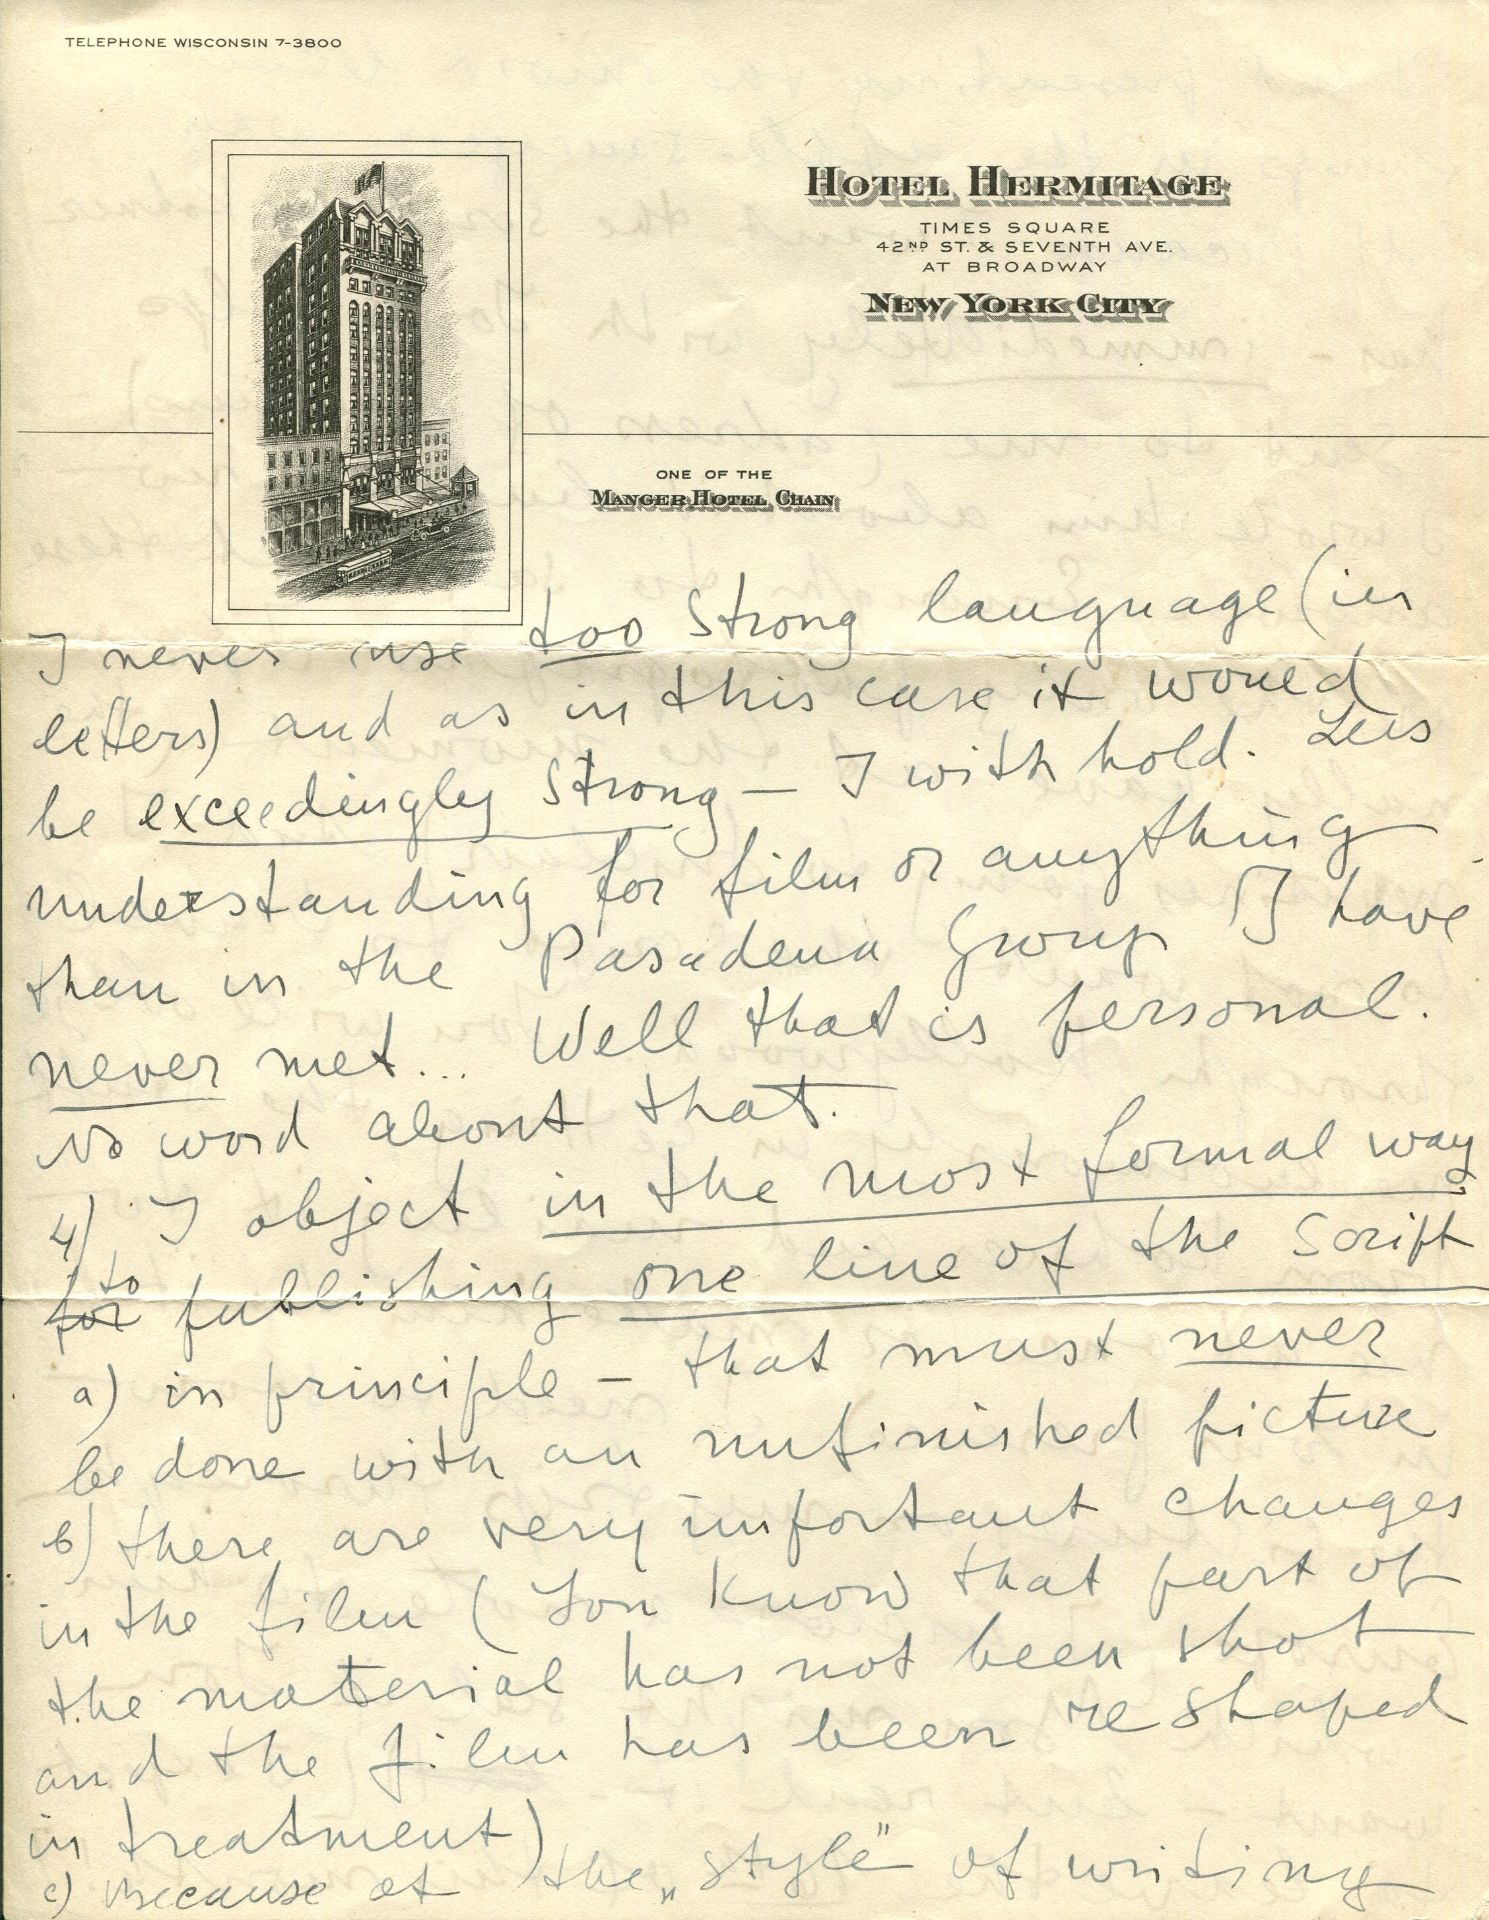 TELEPHONE WISCONSIN 7-3800
HOTEL HERMITAGE
TIMES SQUARE
42ND ST. & SEVENTH AVE.
AT BROADWAY
NEW YORK CITY
ONE OF THE
MANGER HOTEL CHAIN
I never use too strong language (in
letters) and as in this case it would
be exceedingly strong – I withhold. Less
understanding for film or anything
than in the Pasadena Group I have
never met... Well that is personal.
No word about that.
4) I object in the most formal way
for to publishing one line of the script
a) in principle – that must never
be done with an unfinished picture
b) there are very important changes
in the film (You know that part of
the material has not been shot
and the film has been reshaped
in treatment)
c) Because of the „style" of writing